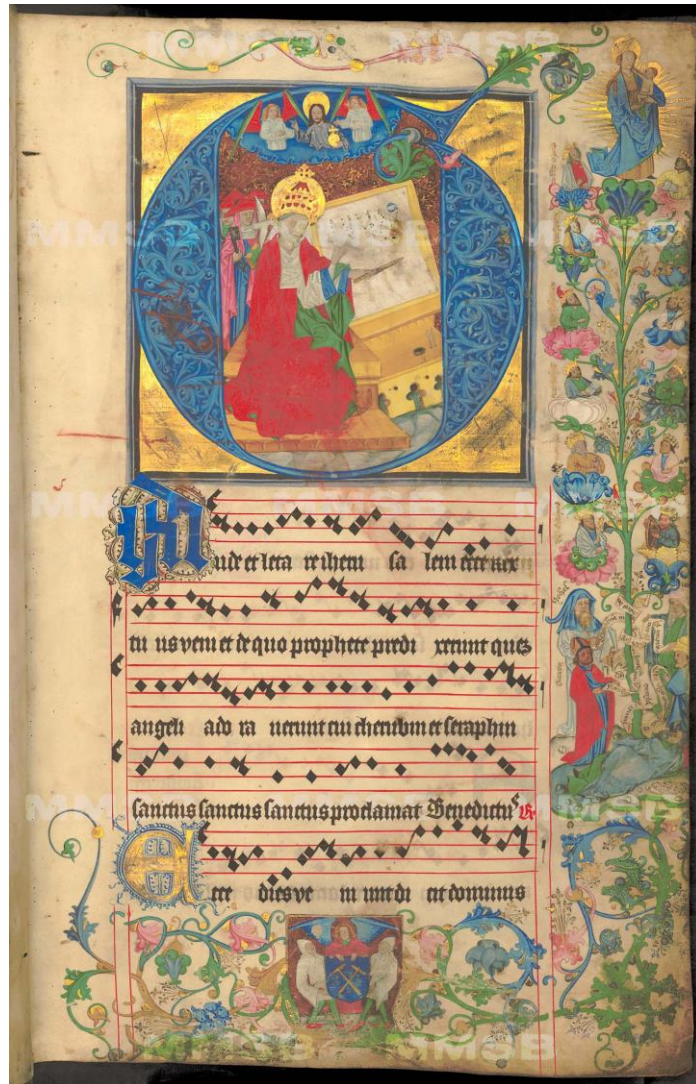 MMSB MMSB
MMSB MMSB MMSB
MMSB MMSB MMSB
Gaude et leta re iheru sa lem ecce rex
tu us veni et de quo prophete predi xerunt quez
angeli ado ra uerunt cui cherubim et seraphin
sanctus sanctus sanctus proclamat Benedictus
MMSB MMSB MMSB
Ecce dies ve ni unt di cit dominus
MMSB MMSB